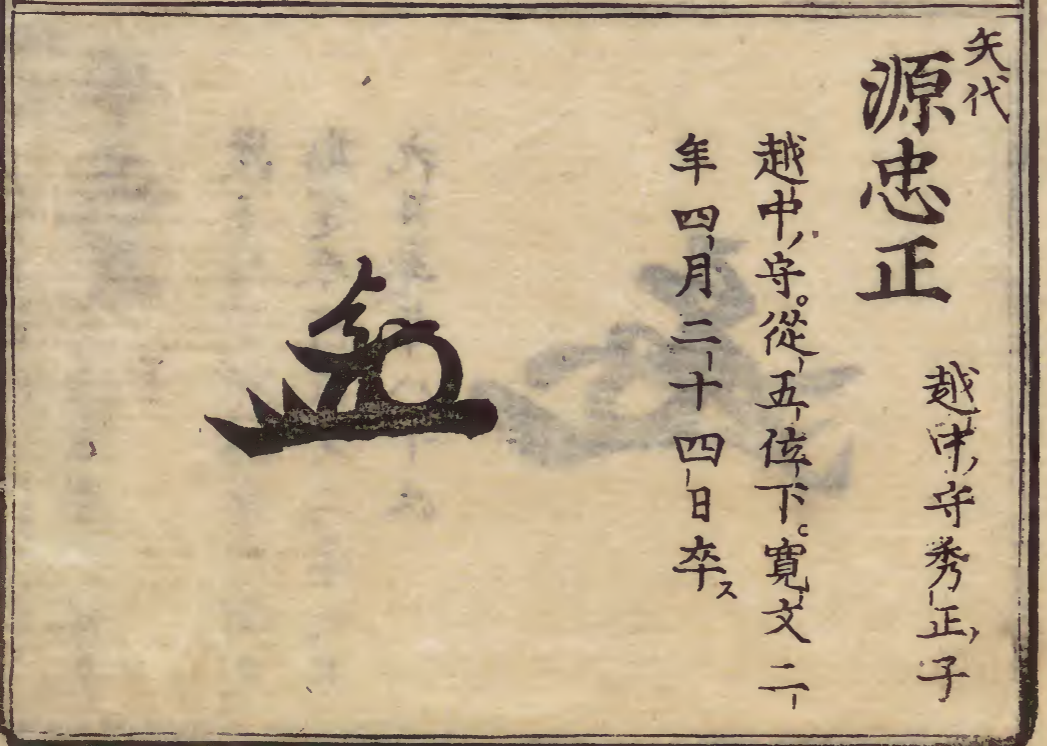 矢代
源忠正
越中ノ守秀正ノ子
越中ノ守。從五位下。寛文二
年四月二十四日卒ス